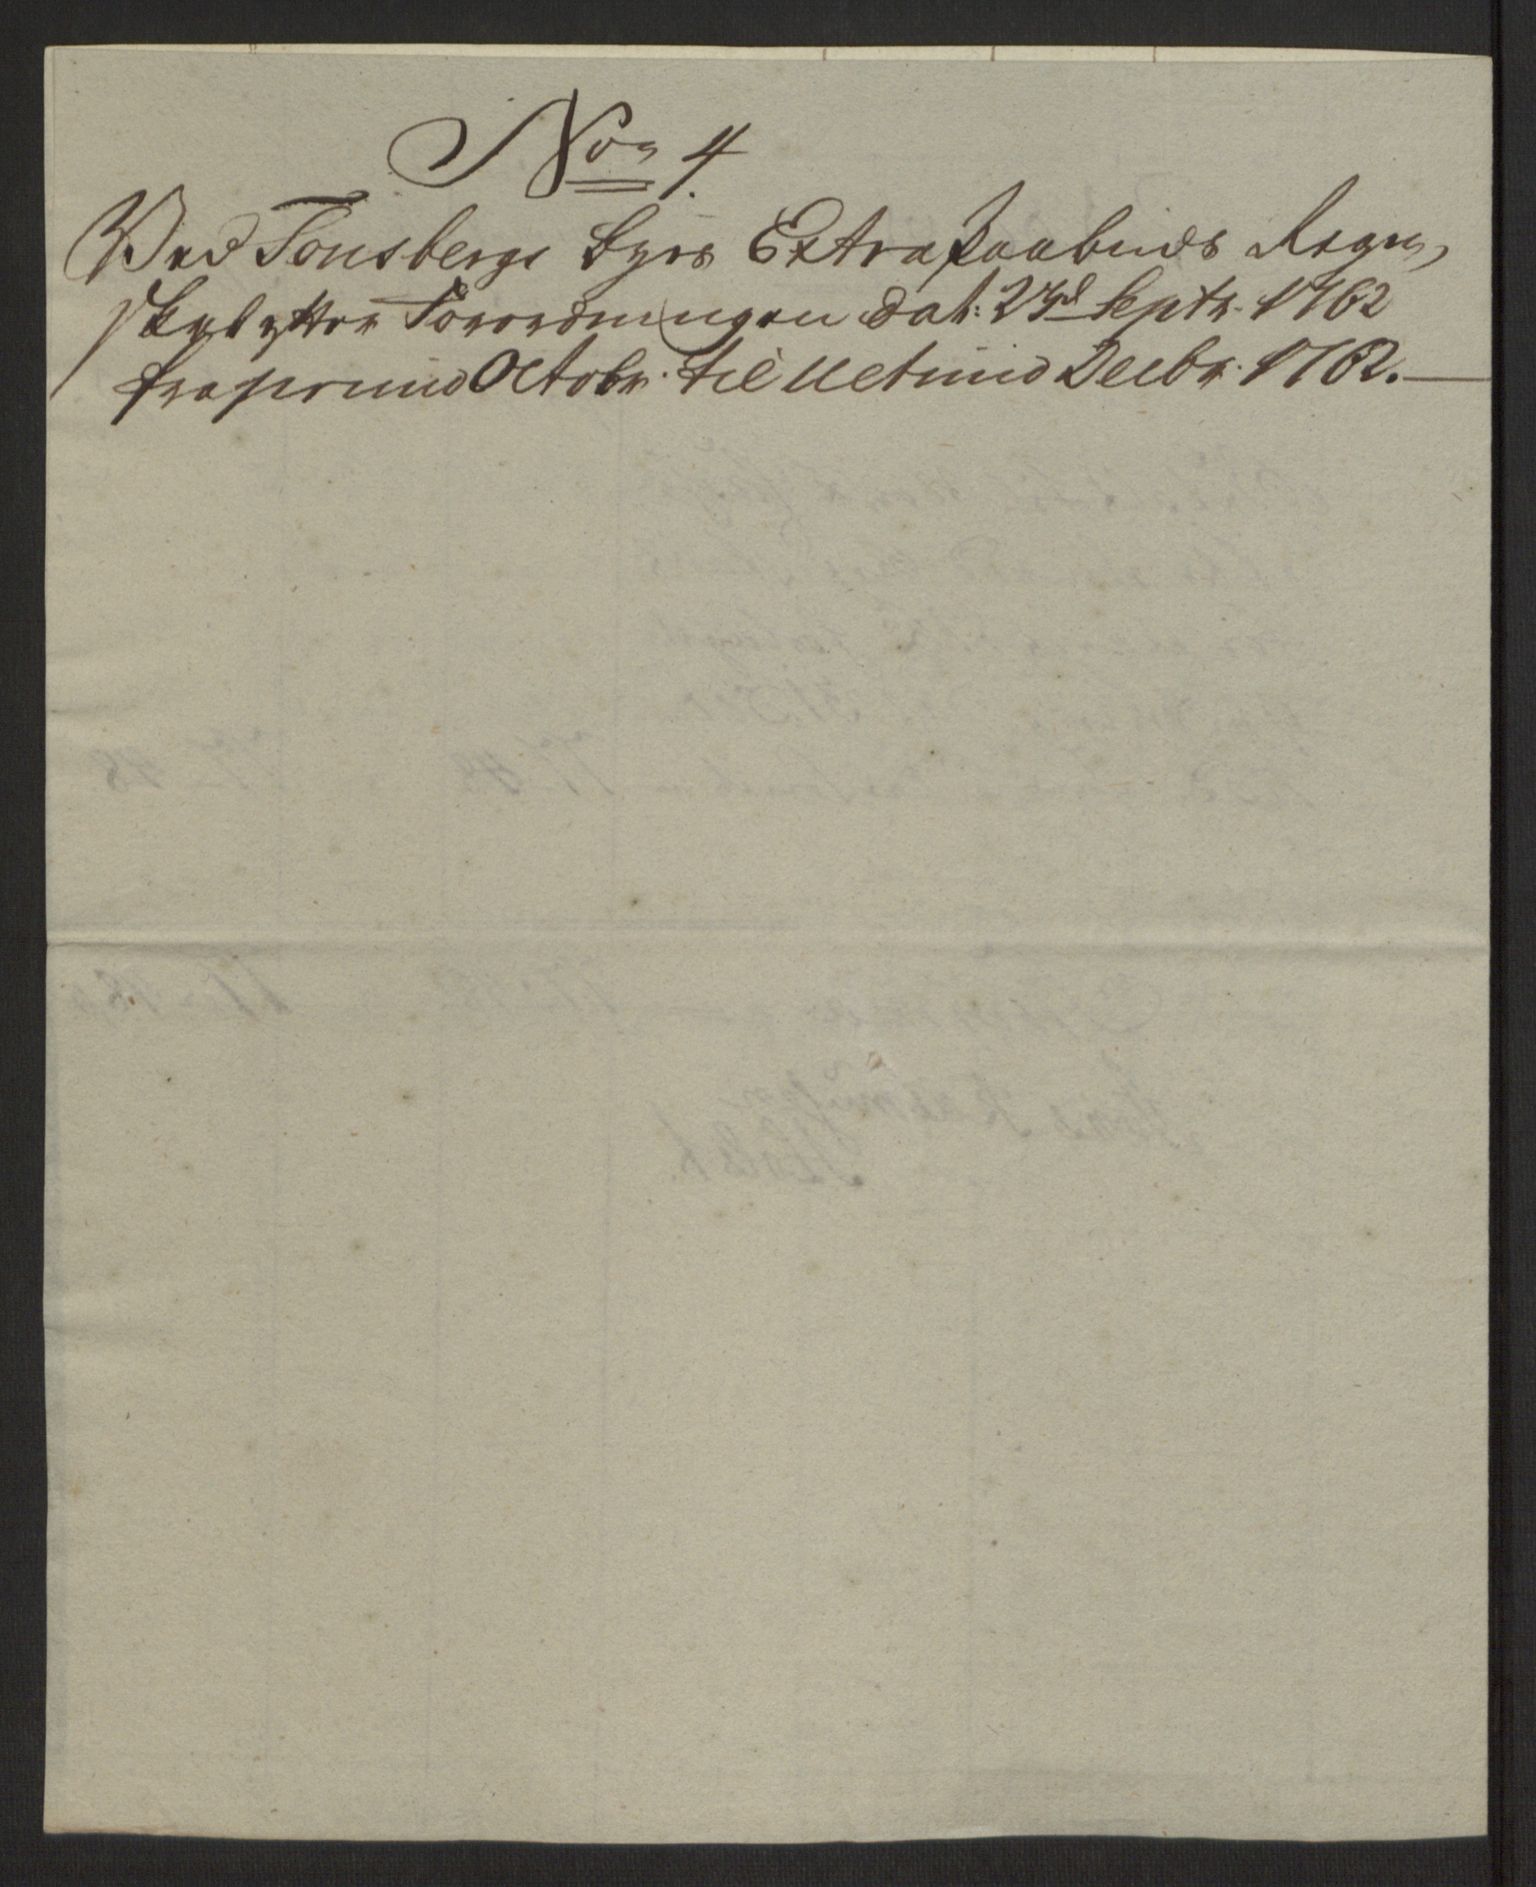 No. 4.
Ved Tønsbergs Byes Extra Paabuds Regn,
skab efter Forordningen dat: 23d Septr. 1762
fra primo Octobr. til Uetimo Decbr. 1762.